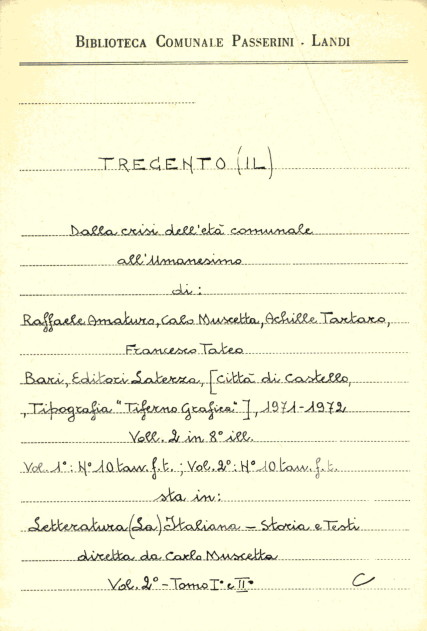 BIBLIOTECA COMUNALE PASSERINI - LANDI
TRECENTO (IL)
Dalla crisi dell'età comunale
all'Umanesimo
di:
Raffaele Amaturo, Calo Muscetta, Achille Tartaro,
Francesco Tateo
Bari, Editori Laterza, [Città di Castello,
Tipografia "Tiferno Grafica"], 1971-1972
Voll. 2 in 8° ill.
Vol. 1°: N° 10 tav. f. t. ; Vol. 2°: N° 10 tav. f. t.
sta in:
Letteratura (La) Italiana - Storia e Testi
diretta da Carlo Muscetta
Vol. 2° - Tomo I° e II° C